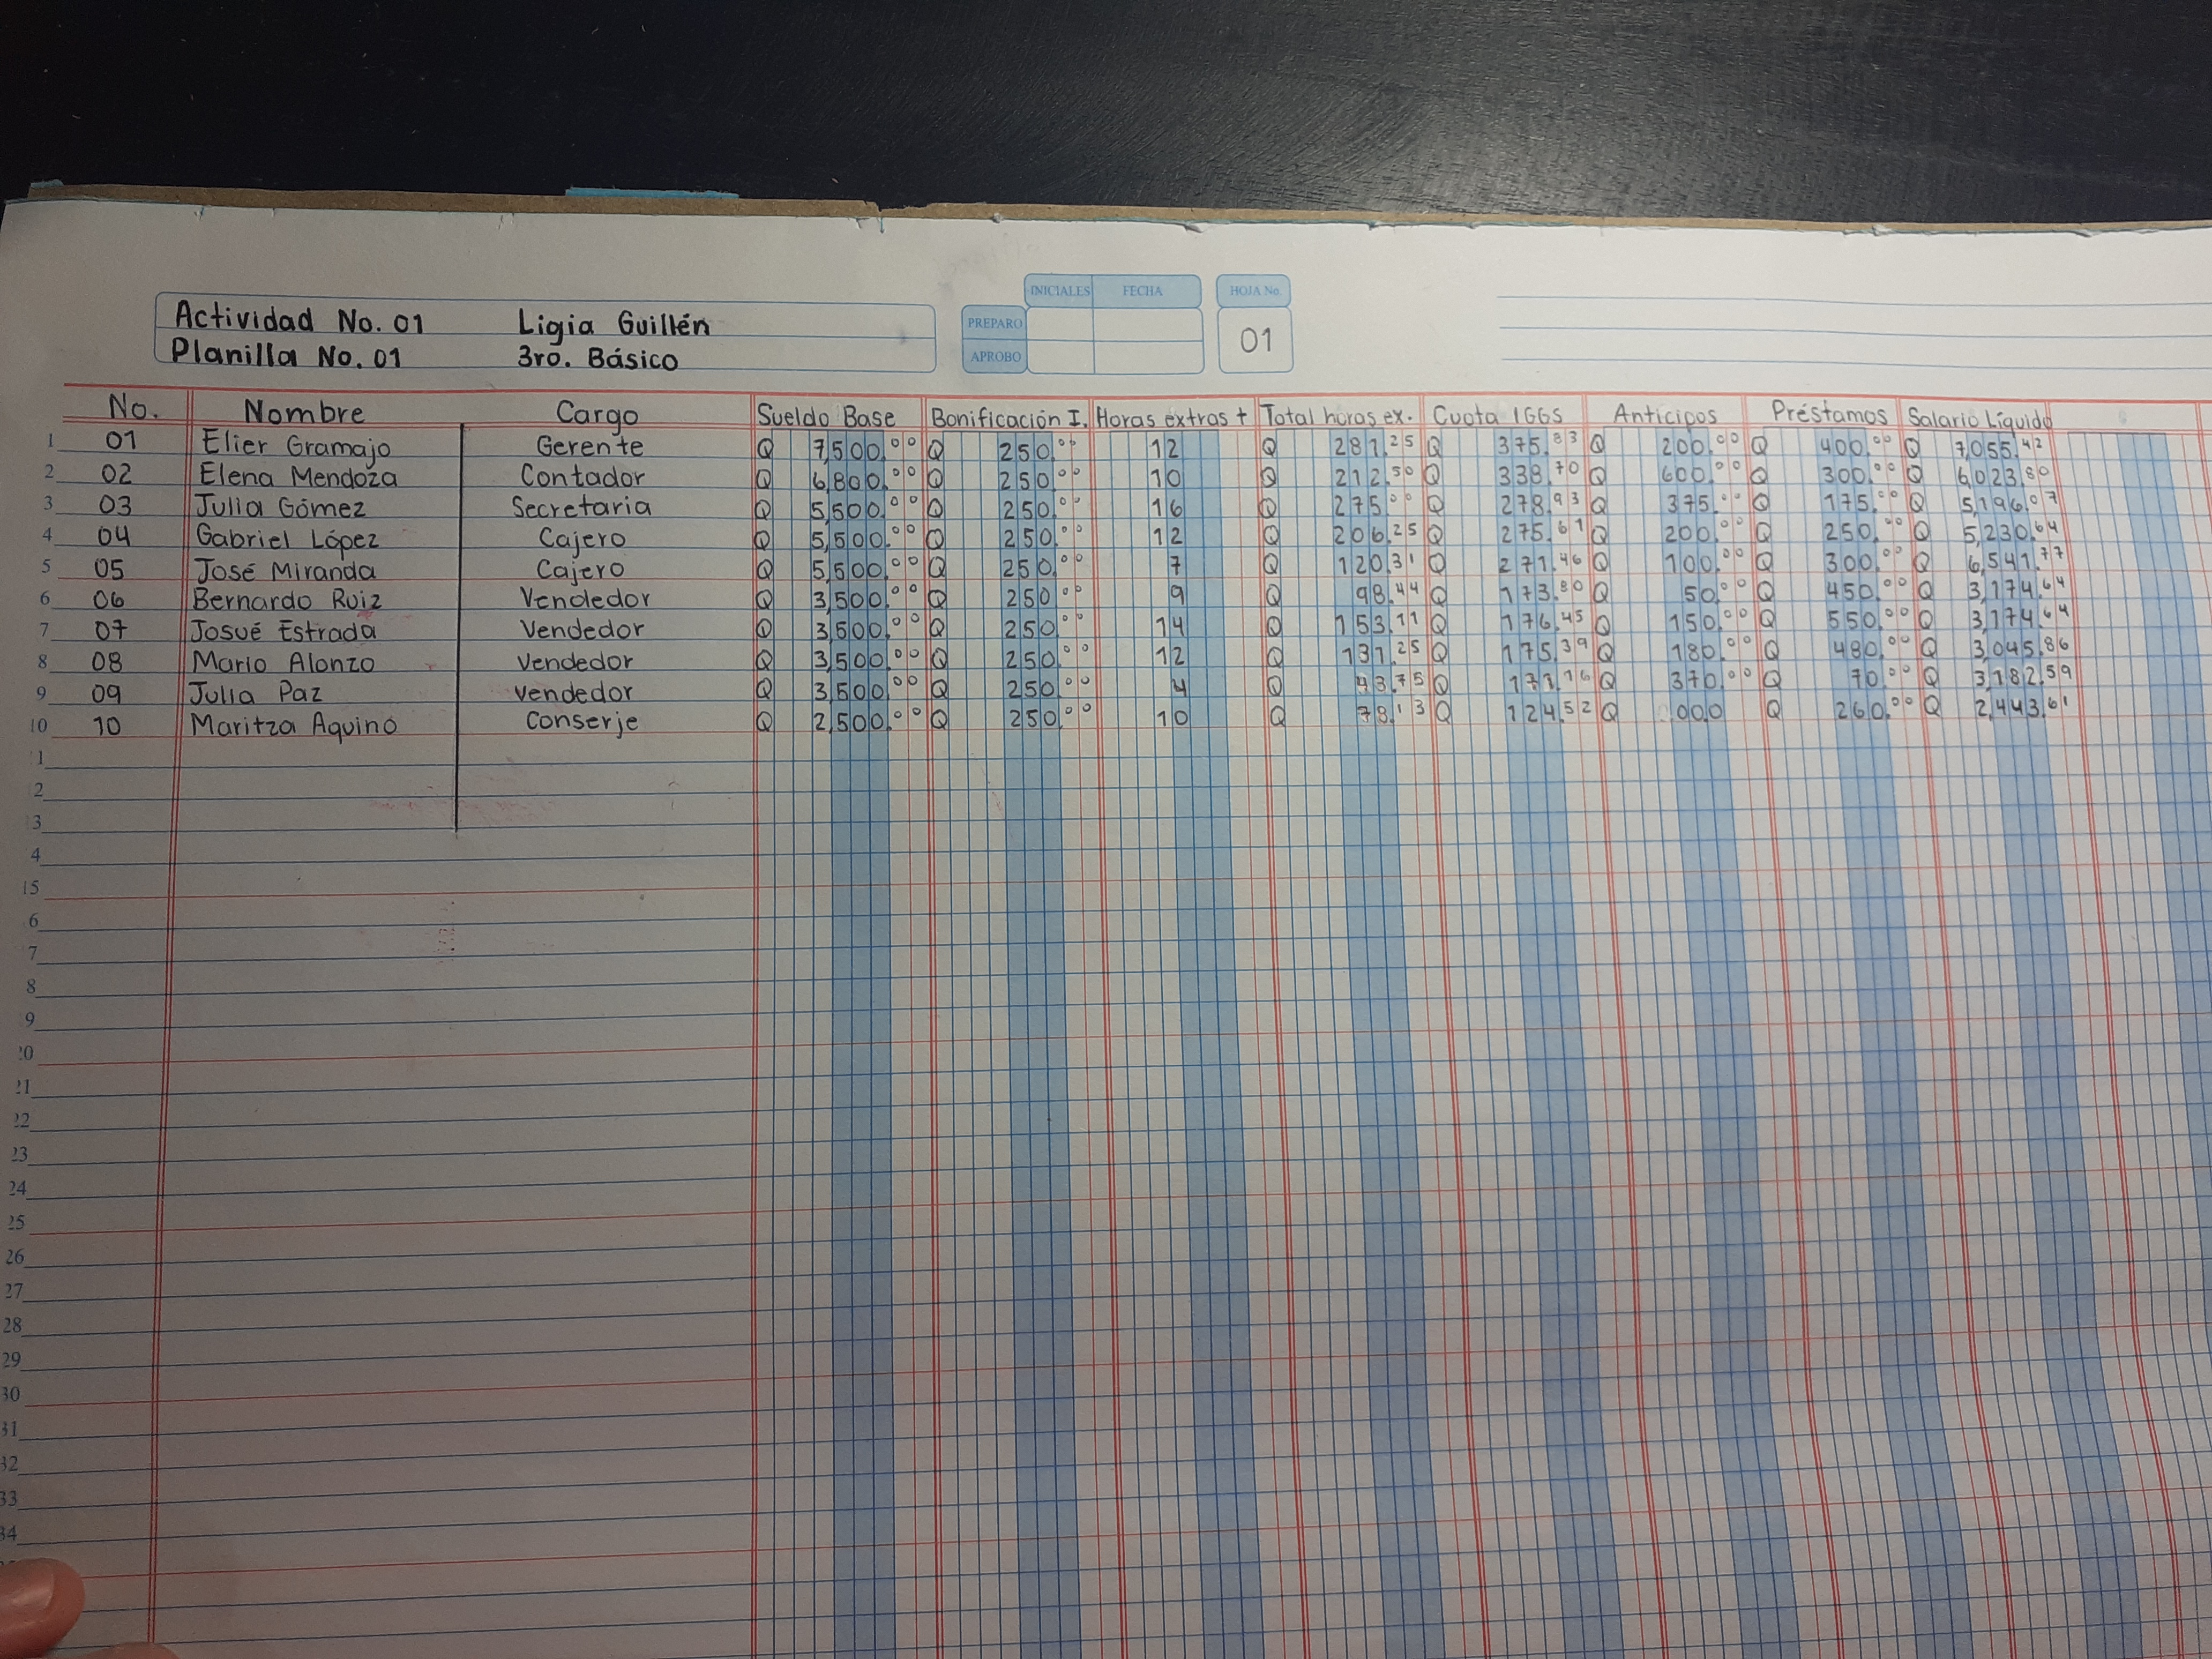 INICIALES FECHA HOJA No.
Actividad No. 01 Ligia Guillén PREPARO 01
Planilla No. 01 3ro. Básico APROBO
No. Nombre Cargo Sueldo Base Bonificación I. Horas extras + Total horas ex. Cuota IGGS Anticipos Préstamos Salario Líquido
1 01 Elier Gramajo Gerente Q 7,500.00 Q 250.00 12 Q 281.25 Q 375.83 Q 200.00 Q 400.00 Q 7,055.42
2 02 Elena Mendoza Contador Q 6,800.00 Q 250.00 10 Q 212.50 Q 338.70 Q 600.00 Q 300.00 Q 6,023.80
3 03 Julia Gómez Secretaria Q 5,500.00 Q 250.00 16 Q 275.00 Q 278.93 Q 375.00 Q 175.00 Q 5,196.07
4 04 Gabriel López Cajero Q 5,500.00 Q 250.00 12 Q 206.25 Q 275.61 Q 200.00 Q 250.00 Q 5,230.64
5 05 José Miranda Cajero Q 5,500.00 Q 250.00 7 Q 120.31 Q 271.46 Q 100.00 Q 300.00 Q 6,541.77
6 06 Bernardo Ruiz Vendedor Q 3,500.00 Q 250.00 9 Q 98.44 Q 173.80 Q 50.00 Q 450.00 Q 3,174.64
7 07 Josué Estrada Vendedor Q 3,500.00 Q 250.00 14 Q 153.11 Q 176.45 Q 150.00 Q 550.00 Q 3,174.64
8 08 Mario Alonzo Vendedor Q 3,500.00 Q 250.00 12 Q 131.25 Q 175.39 Q 180.00 Q 480.00 Q 3,045.86
9 09 Julia Paz Vendedor Q 3,500.00 Q 250.00 4 Q 43.75 Q 171.16 Q 370.00 Q 70.00 Q 3,182.59
10 10 Maritza Aquino Conserje Q 2,500.00 Q 250.00 10 Q 78.13 Q 124.52 Q 000 Q 260.00 Q 2,443.61
1
2
3
4
15
6
7
8
9
20
21
22
23
24
25
26
27
28
29
30
31
32
33
34